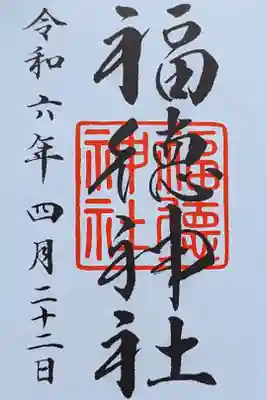 福徳神社
福徳
神社
令和六年四月二十二日